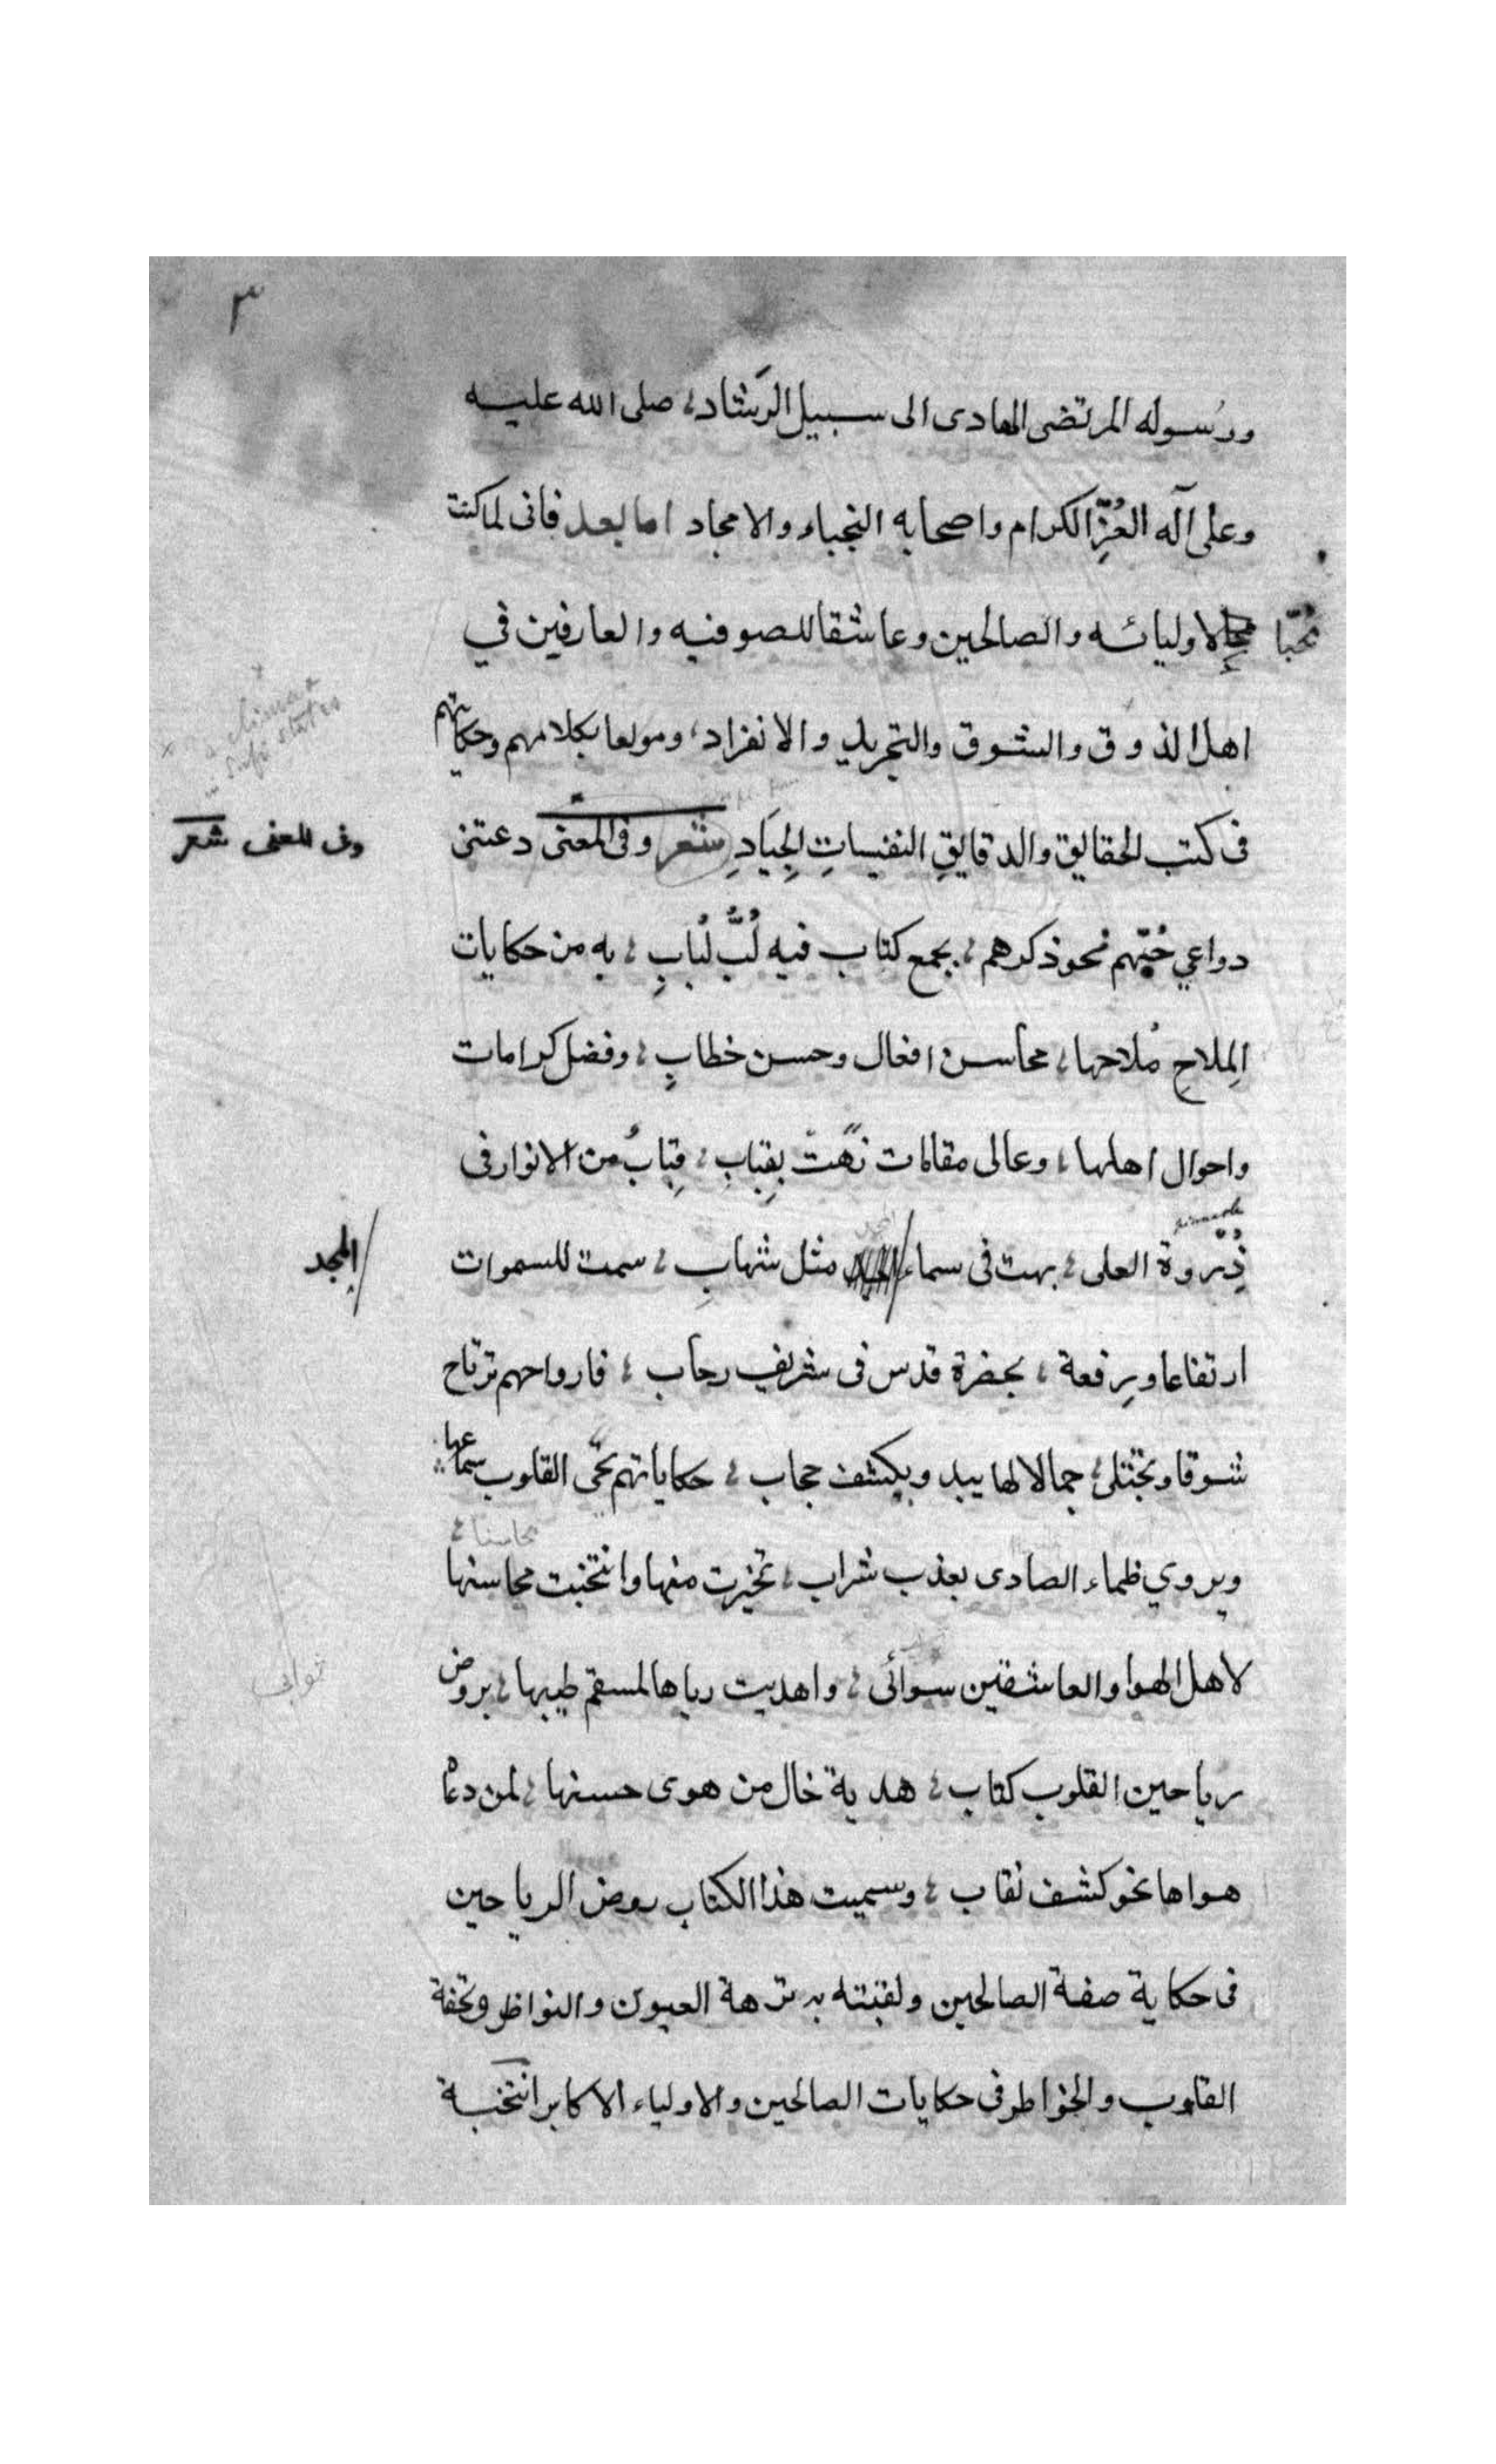 ٣
ورسوله المرتضى الهادى الى سبيل الرشاد، صلى الله عليه
وعلى آله العُزِّ الكرام واصحابه النجباء والامجاد اما بعد فانى لما كنت
مُحبّا
لاوليائه والصالحين وعاشقا للصوفيه والعارفين في
اهل الذوق والشوق والتجريد والانفراد، ومولعا بكلامهم وحكاياتهم
فى كتب الحقايق والدقايقِ النفيساتِ الجِيَادِ شعر وفى المعنى دعتنى
وفى المعنى شعر
دواعي حُبّهم نحو ذكرهم، بجمع كتاب فيه لُبُّ لُبابِ، به من حكايات
المِلاحِ مُلاحها، محاسن افعال وحسن خطابٍ، وفضل كرامات
واحوال اهلها، وعالى مقامات زهت بِقِبابِ، قِبابٌ من الانوار فى
ذِروة العلى، بهت فى سماء مثل شهابِ، سمت للسموات
المجد
ارتفاعا ورفعة، بحضرة قدس فى شريف رحاب، فارواحهم ترتاح
شوقا وتجتلى، جمالا لها يبد ويكشف حجاب، حكاياتهم تحيى القلوب سماعها
ويروي ظماء الصادى بعذب شراب، تخيرت منها وانتخبت محاسنها
محاسنا،
لاهل الهوا والعاشقين سوائى، واهديت رياها لمسقم طيبها، بروض
ثوابى
رياحين القلوب كتاب، هدية خال من هوى حسنها، لمن دعا
هواها نحو كشف نقاب، وسميت هذا الكتاب روض الرياحين
فى حكاية صفة الصالحين ولقبته بنزهة العيون والنواظر وتحفة
القلوب والخواطر فى حكايات الصالحين والاولياء الاكابر انتخبته